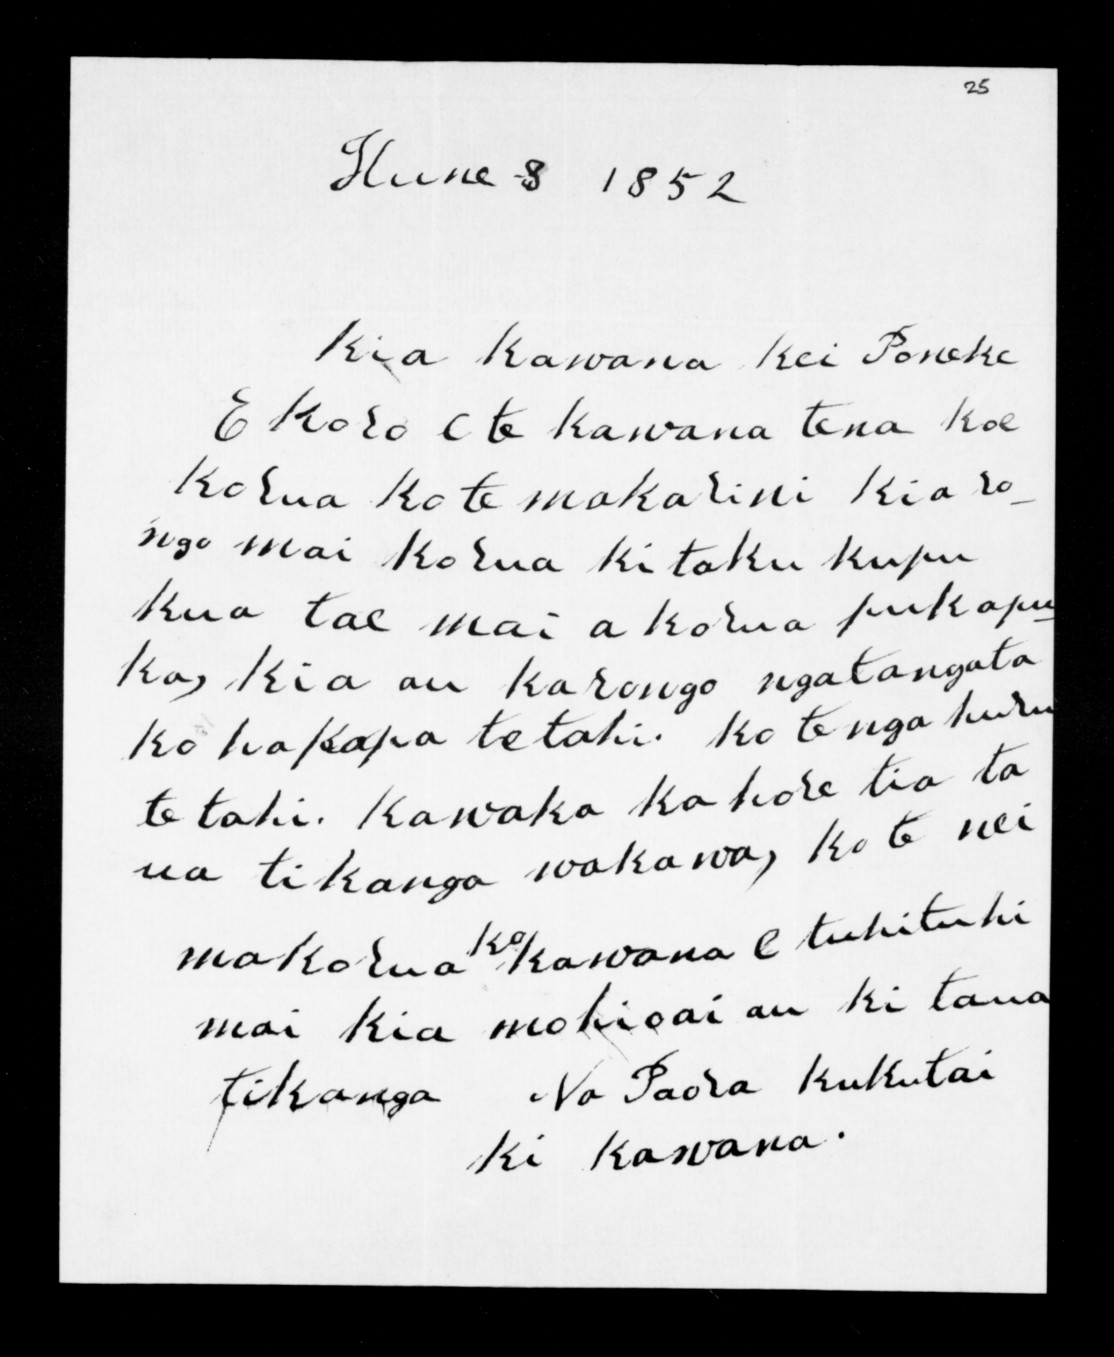 25
Hune 8 1852
Kia Kawana kei Poneke
E Koro E te kawana tena koe
Korua ko te makarini kia ro_
ngo mai korua ki taku kupu
kua tae mai a korua pukapu_
ka, kia au karongo ngatangata
ko hakapa te tahi. ko te ngahuru
te tahi. kawaka kahore tia ta
ua tikanga wakawa, ko te nei
makorua ko kawana E tuhituhi
mai kia mohioai au ki taua
tikanga Na Paora kukutai
ki kawana.